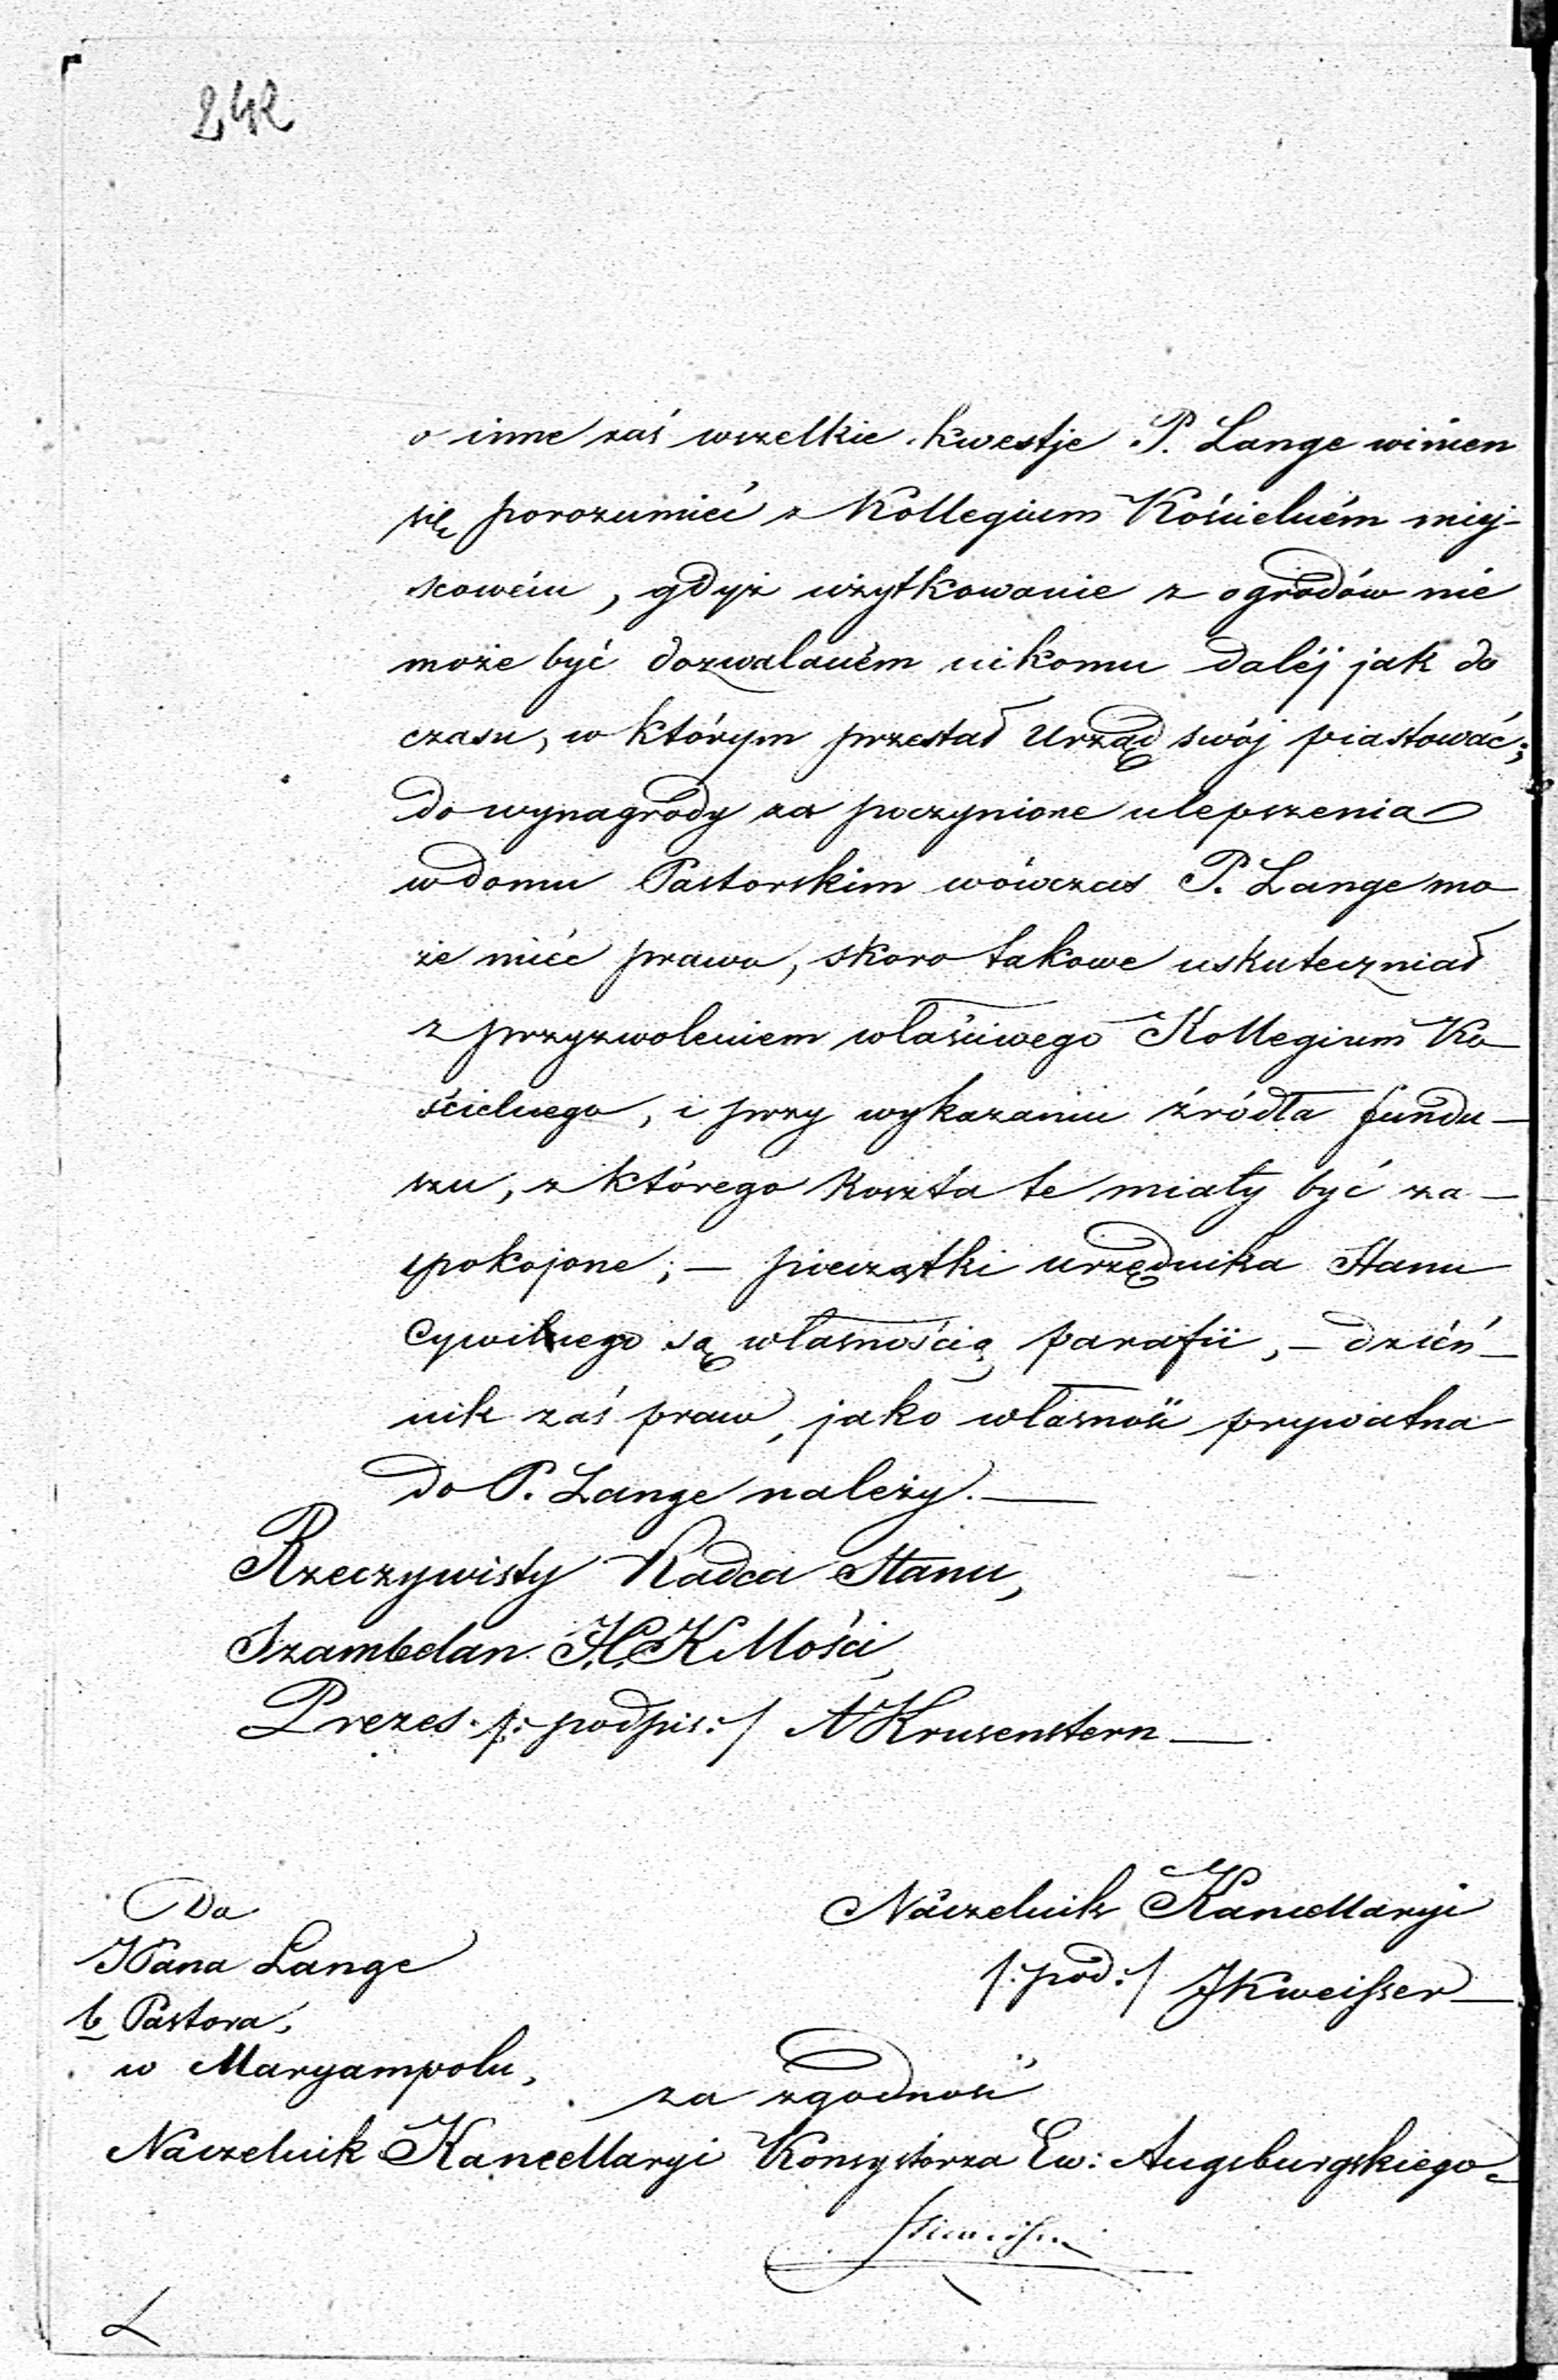 242
o inne zaś wszelkie kwestje P. Lange winien
się porozumieć z Kollegium Kościelném miej-
scowém, gdyż użytkowanie z ogrodów nie
może być dozwalaném nikomu daléj jak do
czasu, w którym przestał Urząd swój piastować;
do wynagrody za poczynione ulepszenia
w domu Pastorskim wówczas P. Lange mo-
że mieć prawo, skoro takowe uskuteczniał
z przyzwoleniem właściwego Kollegium Ko-
ścielnego, i przy wykazaniu źródła fundu-
szu, z którego koszta te miały być za-
spokojone; — pieczątki urzędnika Stanu
Cywilnego są własnością parafii, — dzień-
nik zaś praw, jako własność prywatna
do P. Lange należy. —
Rzeczywisty Radca Stanu,
Szambelan J.C.K Mości
Prezes /: podpis :/ A Krusenstern —
Naczelnik Kancellaryi
/: pod :/ J Kweisser —
Do
WPana Lange
b Pastora,
w Maryampolu,
za zgodność
Naczelnik Kancellaryi Konsystorza Ew: Augsburgskiego